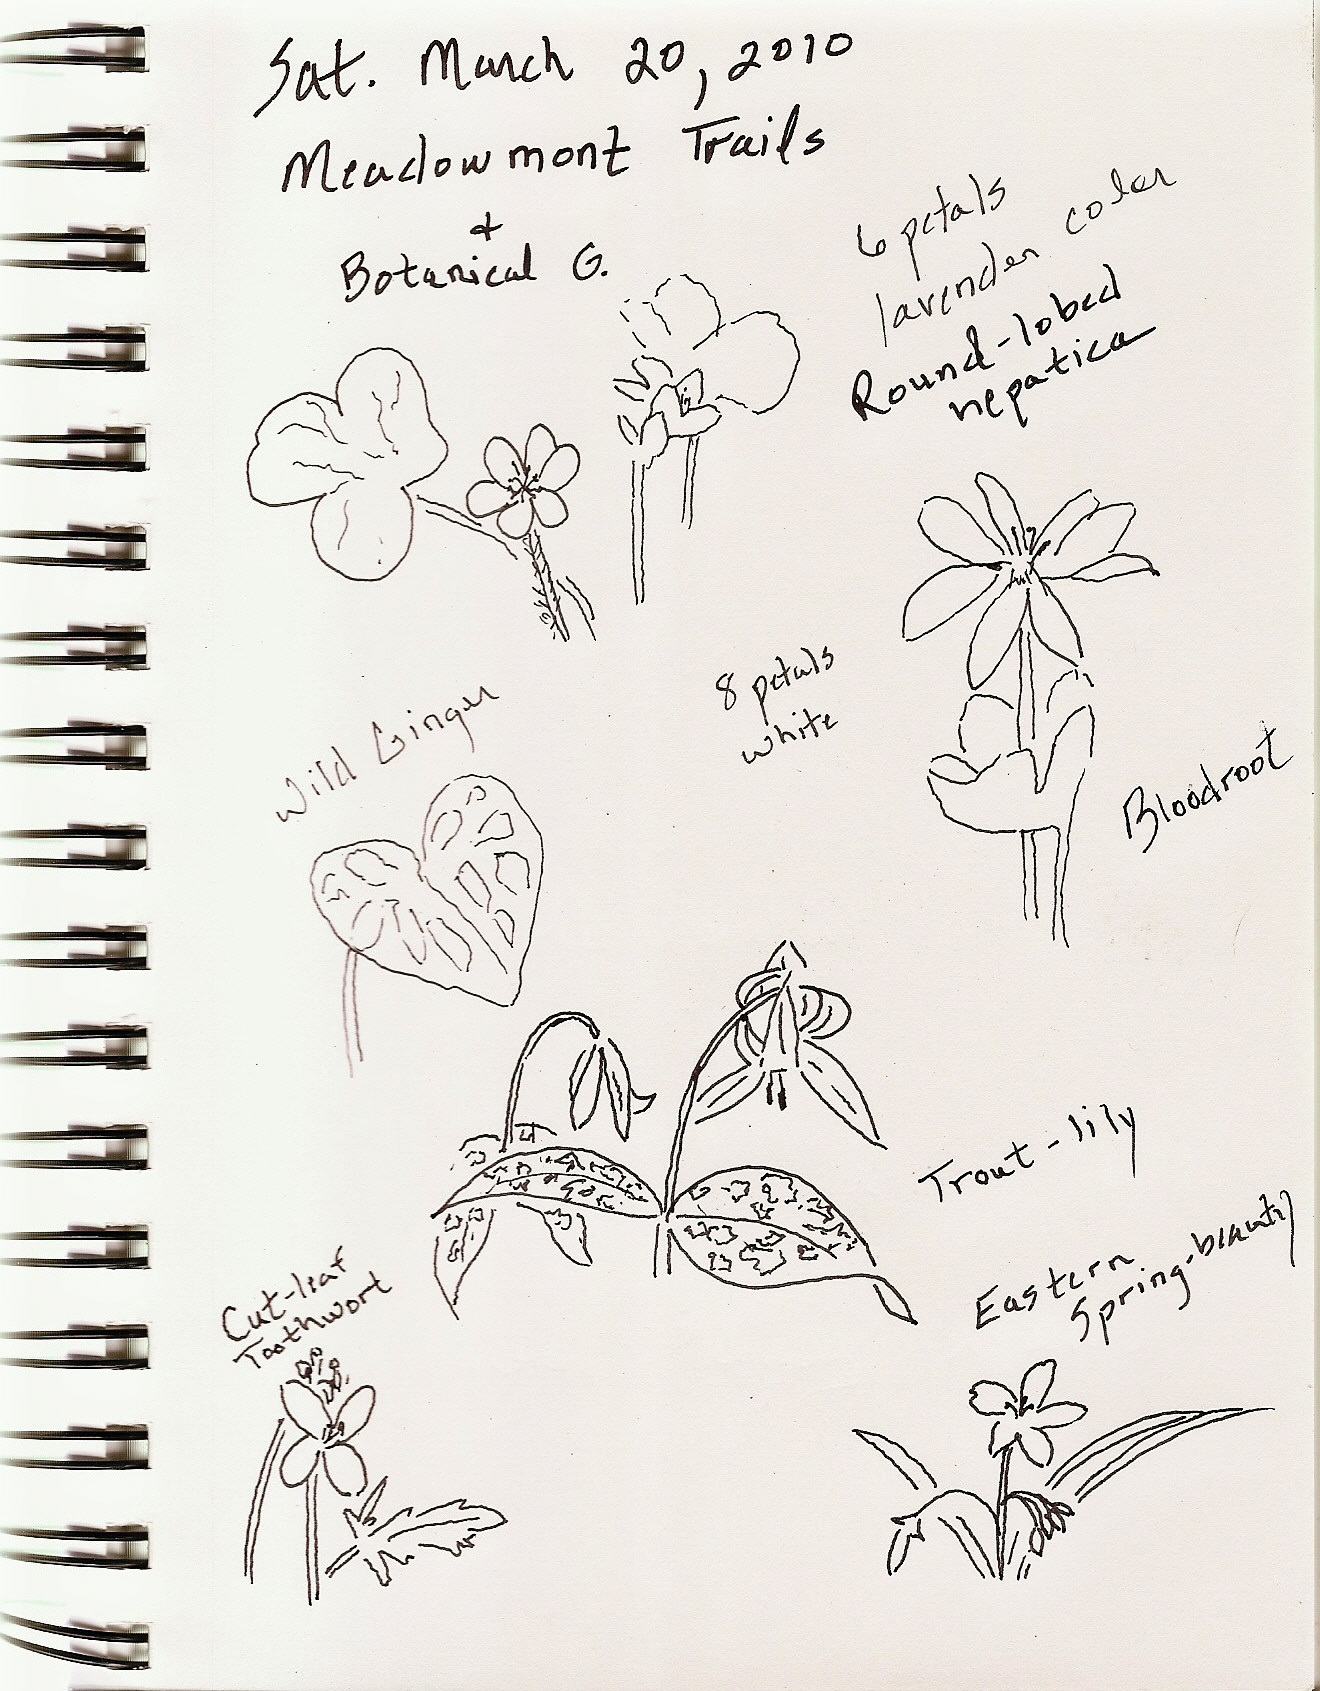 Sat. March 20, 2010
Meadowmont Trails
+
Botanical G.
6 petals
lavender color
Round-lobed
hepatica
8 petals
white
Wild Ginger
Bloodroot
Trout-lily
Eastern
Spring-beauty
Cut-leaf
Toothwort